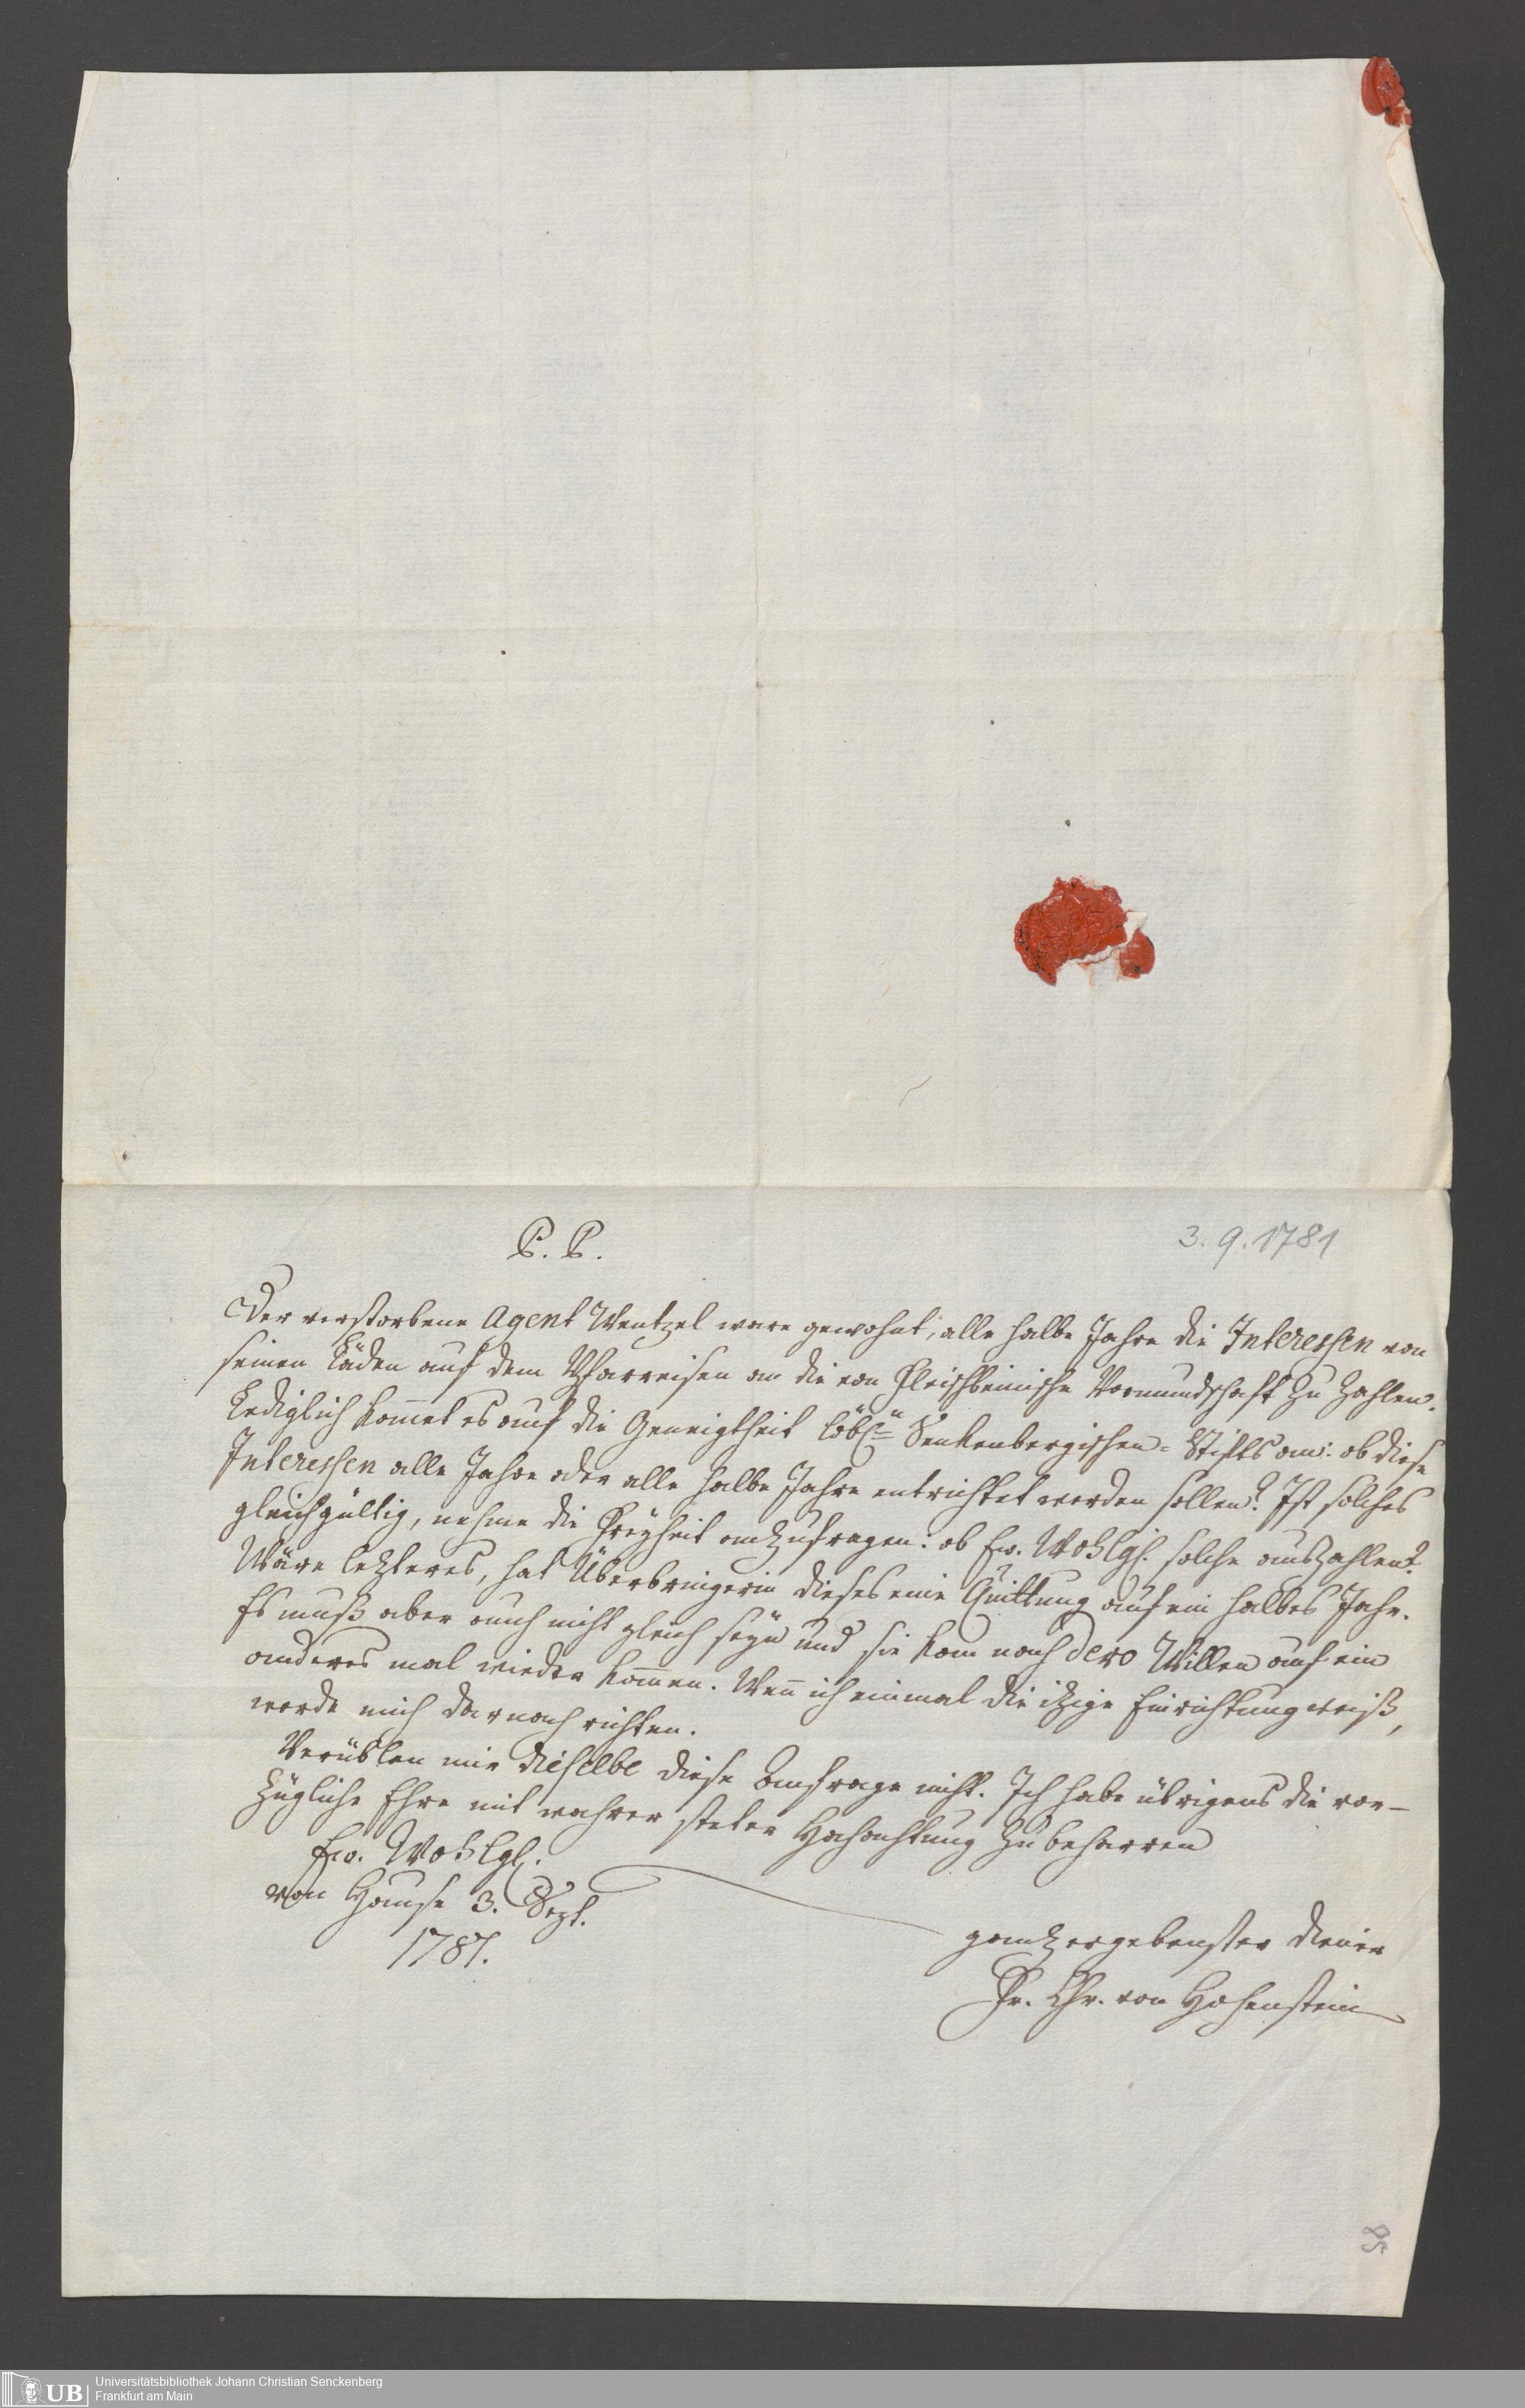 P. P.
3. 9. 1781
Der verstorbene Agent Wentzel ware gewohnt, alle halbe Jahre die Interessen von
seinen Läden auf dem Pfarreisen an die von Fleischbeinische Vormundschaft zu zahlen.
Lediglich kom̄et es auf die Geneigtheit löbl.n Senkenbergischen-Stifts an: ob diese
Interessen alle Jahre oder alle halbe Jahre entrichtet werden sollen? Ist solches
gleichgültig, nehme die Freyheit anzufragen: ob Ew. Wohlgl. solche auszahlen?
Wäre lezteres, hat Überbringerin dieses eine Quittung auf ein halbes Jahr.
Es muß aber auch nicht gleich seyn und sie kan nach dero Willen auf ein
anderes mal wieder kom̄en. Wen̄ ich einmal die itzige Einrichtung weiß,
werde mich darnach richten.
Verüblen mir dieselbe diese Anfrage nicht. Ich habe übrigens die vor-
zügliche Ehre mit wahrer steter Hochachtung zu beharren
Ew. Wohlgl.
von Hause 3. Sept.
1781.
gantz ergebenster Diener
Fr. Chr. von Hohenstein
58
UB
Universitätsbibliothek Johann Christian Senckenberg
Frankfurt am Main